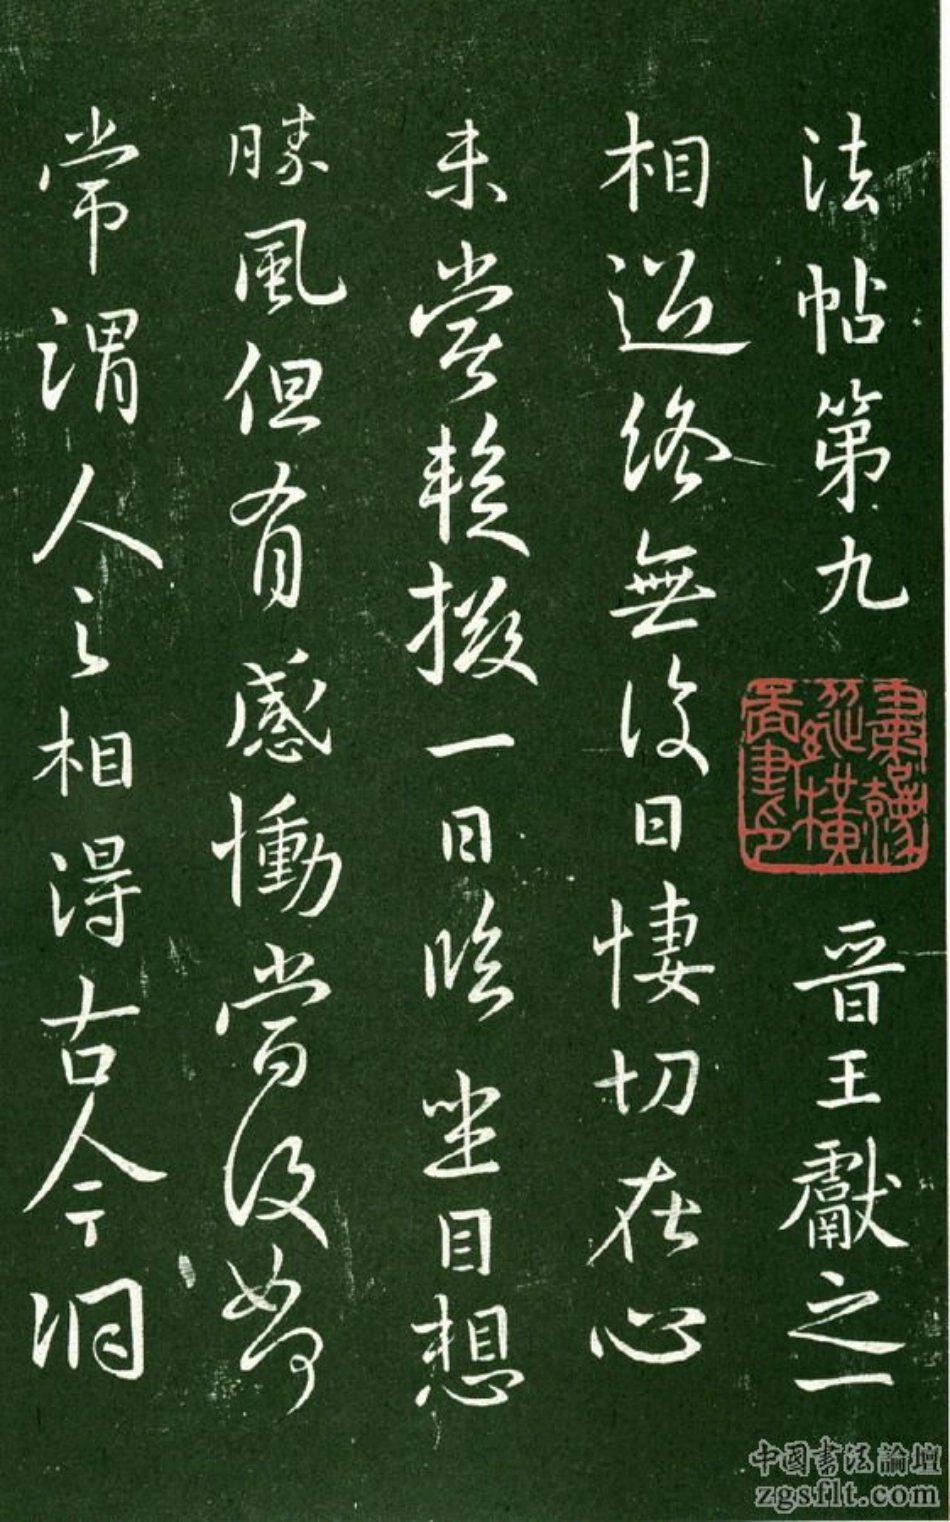 法帖第九 晋王獻之一
相過終無復日悽切在心
未嘗暫掇一日臨坐目想
勝風但有感慟當復如何
常謂人之相得古今洞
中国书法論壇
zgsflt.com